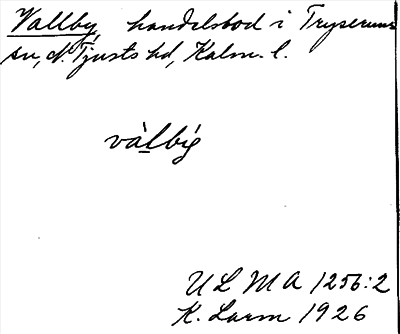 Vallby, handelsbod i Tryserums
sn, N. Tjusts hd, Kalm. l.
vàlbýg
U L M A 1256:2
K. Larm 1926